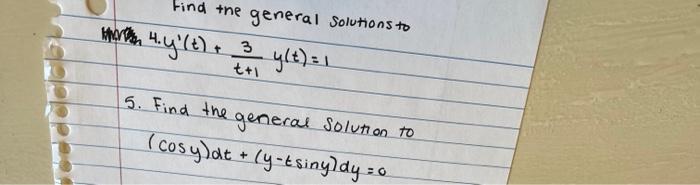 Find the general solutions to
4. y'(t) + 3/(t+1) y(t) = 1
5. Find the general solution to
(cosy)dt + (y-tsiny)dy = 0